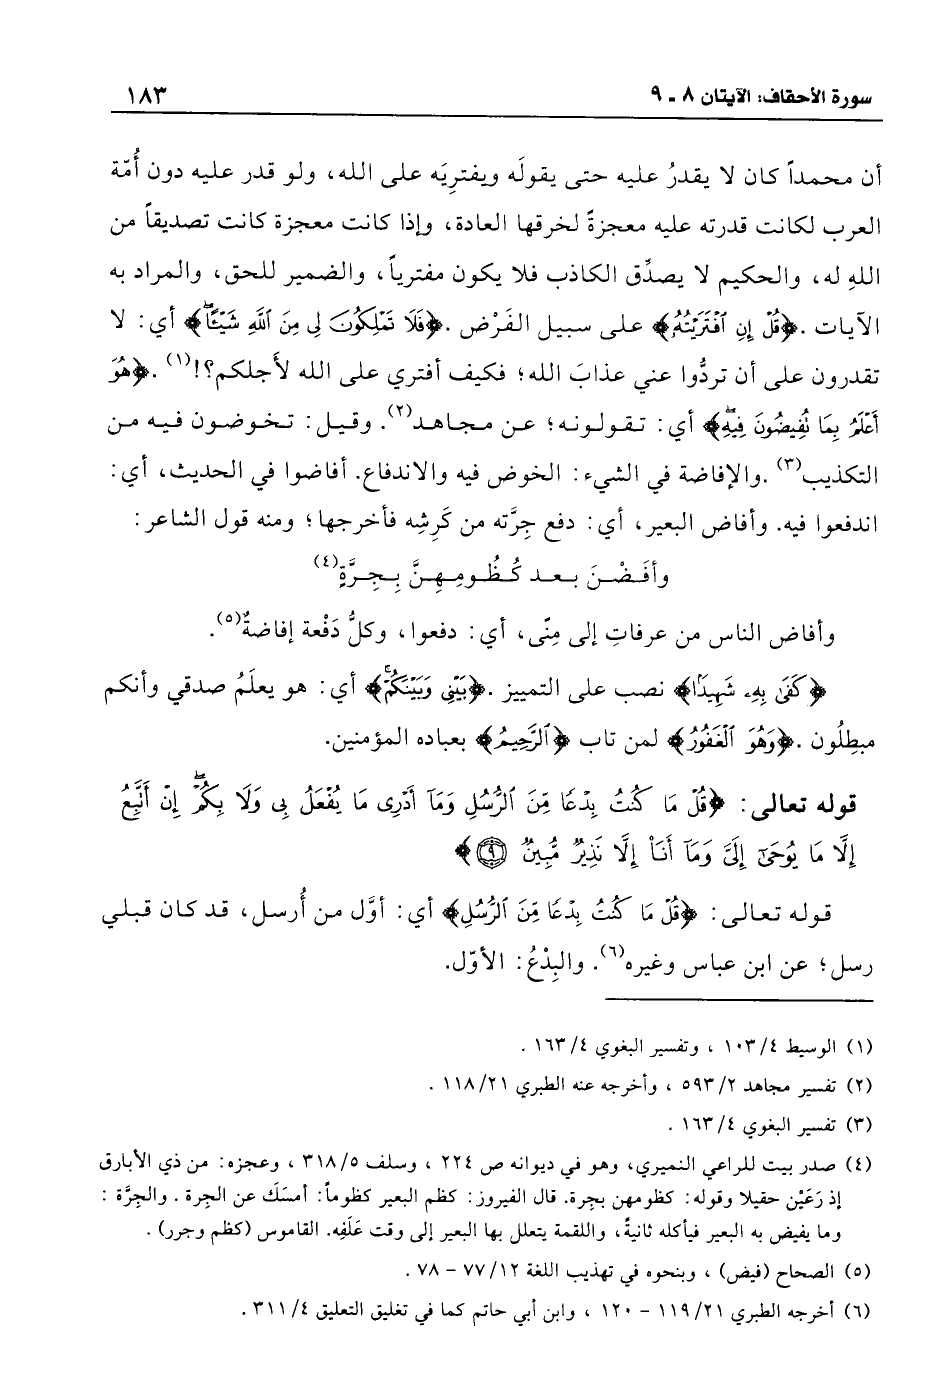 سورة الأحقاف: الآيتان ٨ ـ ٩ ١٨٣
أن محمداً كان لا يقدرُ عليه حتى يقولَه ويفترِيَه على الله، ولو قدر عليه دون أُمّة
العرب لكانت قدرته عليه معجزةً لخرقها العادة، وإذا كانت معجزة كانت تصديقاً من
اللهِ له، والحكيم لا يصدِّق الكاذب فلا يكون مفترياً، والضمير للحق، والمراد به
الآيات. ﴿قُلْ إِنِ ٱفْتَرَيْتُهُۥ﴾ على سبيل الفَرْض. ﴿فَلَا تَمْلِكُونَ لِى مِنَ ٱللَّهِ شَيْـًٔاۖ﴾ أي: لا
تقدرون على أن تردُّوا عني عذابَ الله؛ فكيف أفتري على الله لأجلكم؟!(١). ﴿هُوَ
أَعْلَمُ بِمَا تُفِيضُونَ فِيهِۖ﴾ أي: تقولونه؛ عن مجاهد(٢). وقيل: تخوضون فيه من
التكذيب(٣). والإفاضة في الشيء: الخوض فيه والاندفاع. أفاضوا في الحديث، أي:
اندفعوا فيه. وأفاض البعير، أي: دفع جِرَّته من كَرِشِه فأخرجها؛ ومنه قول الشاعر:
وأفَضْنَ بعد كُظُومِهِنَّ بِجِرَّةٍ(٤)
وأفاض الناس من عرفاتٍ إلى مِنًى، أي: دفعوا، وكلُّ دَفْعة إفاضةٌ(٥).
﴿كَفَىٰ بِهِۦ شَهِيدًۢا﴾ نصب على التمييز. ﴿بَيْنِى وَبَيْنَكُمْۚ﴾ أي: هو يعلَمُ صدقي وأنكم
مبطِلُون. ﴿وَهُوَ ٱلْغَفُورُ﴾ لمن تاب ﴿ٱلرَّحِيمُ﴾ بعباده المؤمنين.
قوله تعالى: ﴿قُلْ مَا كُنتُ بِدْعًا مِّنَ ٱلرُّسُلِ وَمَآ أَدْرِى مَا يُفْعَلُ بِى وَلَا بِكُمْۖ إِنْ أَتَّبِعُ
إِلَّا مَا يُوحَىٰٓ إِلَىَّ وَمَآ أَنَا۠ إِلَّا نَذِيرٌ مُّبِينٌ ٩﴾
قوله تعالى: ﴿قُلْ مَا كُنتُ بِدْعًا مِّنَ ٱلرُّسُلِ﴾ أي: أوَّل من أُرسل، قد كان قبلي
رسل؛ عن ابن عباس وغيره(٦). والبِدْعُ: الأوّل.
(١) الوسيط ٤/ ١٠٣، وتفسير البغوي ٤/ ١٦٣.
(٢) تفسير مجاهد ٢/ ٥٩٣، وأخرجه عنه الطبري ٢١/ ١١٨.
(٣) تفسير البغوي ٤/ ١٦٣.
(٤) صدر بيت للراعي النميري، وهو في ديوانه ص ٢٢٤، وسلف ٥/ ٣١٨، وعجزه: من ذي الأبارق
إذ رَعَيْن حقيلا وقوله: كظومهن بجرة. قال الفيروز: كظم البعير كظوماً: أمسَك عن الجرة. والجِرَّة:
وما يفيض به البعير فيأكله ثانيةً، واللقمة يتعلل بها البعير إلى وقت عَلَفِه. القاموس (كظم وجرر).
(٥) الصحاح (فيض)، وبنحوه في تهذيب اللغة ١٢/ ٧٧ - ٧٨.
(٦) أخرجه الطبري ٢١/ ١١٩ - ١٢٠، وابن أبي حاتم كما في تغليق التعليق ٤/ ٣١١.